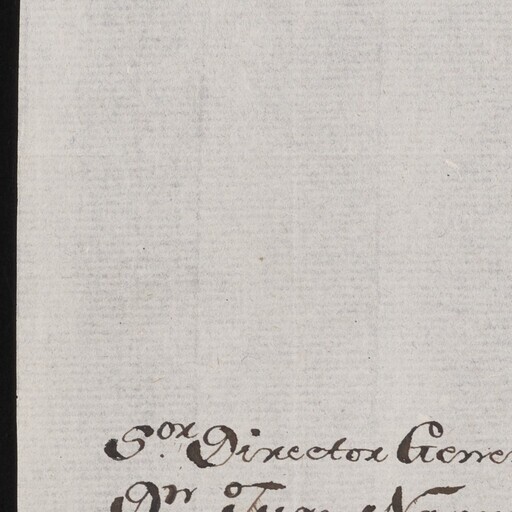 S.or Director Gene
Dn Juan